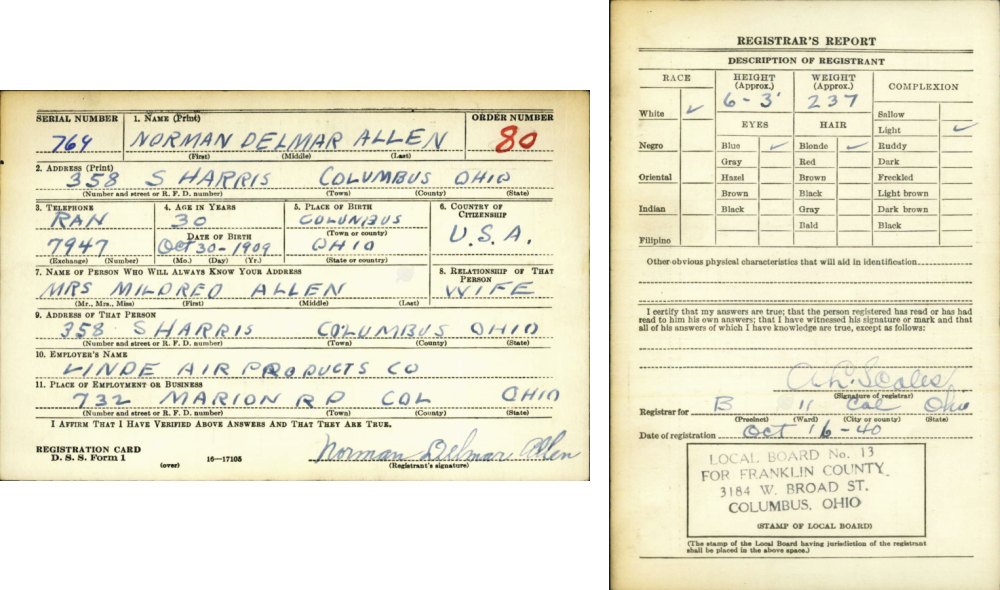 SERIAL NUMBER 1. NAME (Print) ORDER NUMBER
764 NORMAN DELMAR ALLEN 80
(First) (Middle) (Last)
2. ADDRESS (Print)
358 S HARRIS COLUMBUS OHIO
(Number and street or R. F. D. number) (Town) (County) (State)
3. TELEPHONE 4. AGE IN YEARS 5. PLACE OF BIRTH 6. COUNTRY OF CITIZENSHIP
RAN 30 COLUMBUS
DATE OF BIRTH (Town or county) U.S.A.
7947 Oct 30-1909 OHIO
(Exchange) (Number) (Mo.) (Day) (Yr.) (State or country)
7. NAME OF PERSON WHO WILL ALWAYS KNOW YOUR ADDRESS 8. RELATIONSHIP OF THAT PERSON
MRS MILDRED ALLEN WIFE
(Mr., Mrs., Miss) (First) (Middle) (Last)
9. ADDRESS OF THAT PERSON
358 S HARRIS COLUMBUS OHIO
(Number and street or R. F. D. number) (Town) (County) (State)
10. EMPLOYER'S NAME
LINDE AIR PRODUCTS CO
11. PLACE OF EMPLOYMENT OR BUSINESS
732 MARION RD COL OHIO
(Number and street or R. F. D. number) (Town) (County) (State)
I AFFIRM THAT I HAVE VERIFIED ABOVE ANSWERS AND THAT THEY ARE TRUE.
REGISTRATION CARD
D. S. S. Form 1 (over) 16—17105 Norman Delmar Allen
(Registrant's signature)
REGISTRAR'S REPORT
DESCRIPTION OF REGISTRANT
RACE HEIGHT (Approx.) WEIGHT (Approx.) COMPLEXION
6-3' 237
White ✓ Sallow
EYES HAIR Light ✓
Negro Blue ✓ Blonde ✓ Ruddy
Gray Red Dark
Oriental Hazel Brown Freckled
Brown Black Light brown
Indian Black Gray Dark brown
Bald Black
Filipino
Other obvious physical characteristics that will aid in identification
I certify that my answers are true; that the person registered has read or has had
read to him his own answers; that I have witnessed his signature or mark and that
all of his answers of which I have knowledge are true, except as follows:
A.L. Scales
(Signature of registrar)
Registrar for B 11 Col Ohio
(Precinct) (Ward) (City or county) (State)
Date of registration Oct 16-40
LOCAL BOARD No. 13
FOR FRANKLIN COUNTY
3184 W. BROAD ST.
COLUMBUS, OHIO
(STAMP OF LOCAL BOARD)
(The stamp of the Local Board having jurisdiction of the registrant
shall be placed in the above space.)